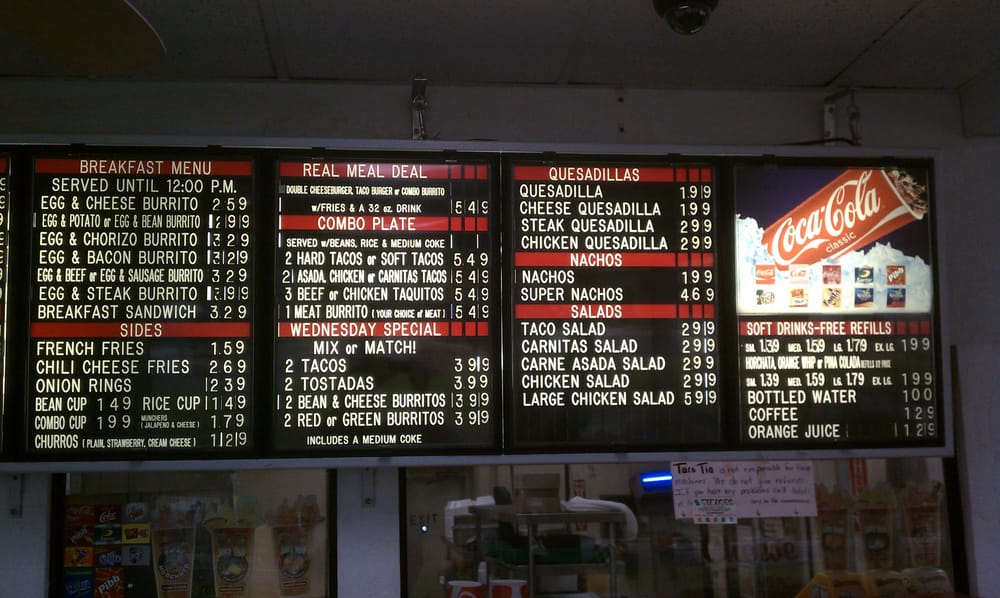 BREAKFAST MENU
SERVED UNTIL 12:00 P.M.
EGG & CHEESE BURRITO 2 5 9
EGG & POTATO or EGG & BEAN BURRITO 2 9 9
EGG & CHORIZO BURRITO 3 2 9
EGG & BACON BURRITO 3 2 9
EGG & BEEF or EGG & SAUSAGE BURRITO 3 2 9
EGG & STEAK BURRITO 3 9 9
BREAKFAST SANDWICH 3 2 9
SIDES
FRENCH FRIES 1.5 9
CHILI CHEESE FRIES 2 6 9
ONION RINGS 2 3 9
BEAN CUP 1 4 9 RICE CUP 1 4 9
COMBO CUP 1 9 9 MUNCHERS (JALAPENO & CHEESE) 1.7 9
CHURROS (PLAIN, STRAWBERRY, CREAM CHEESE) 1 2 9
REAL MEAL DEAL
DOUBLE CHEESEBURGER, TACO BURGER or COMBO BURRITO
w/FRIES & A 32 oz. DRINK 5 4 9
COMBO PLATE
SERVED w/BEANS, RICE & MEDIUM COKE
2 HARD TACOS or SOFT TACOS 5.4 9
2 ASADA, CHICKEN or CARNITAS TACOS 5 4 9
3 BEEF or CHICKEN TAQUITOS 5 4 9
1 MEAT BURRITO (YOUR CHOICE of MEAT) 5 4 9
WEDNESDAY SPECIAL
MIX or MATCH!
2 TACOS 3 9 9
2 TOSTADAS 3.9 9
2 BEAN & CHEESE BURRITOS 3 9 9
2 RED or GREEN BURRITOS 3 9 9
INCLUDES A MEDIUM COKE
QUESADILLAS
QUESADILLA 1.9 9
CHEESE QUESADILLA 1.9 9
STEAK QUESADILLA 2 9 9
CHICKEN QUESADILLA 2 9 9
NACHOS
NACHOS 1 9 9
SUPER NACHOS 4 6 9
SALADS
TACO SALAD 2 9 9
CARNITAS SALAD 2 9 9
CARNE ASADA SALAD 2 9 9
CHICKEN SALAD 2 9 9
LARGE CHICKEN SALAD 5 9 9
Coca-Cola
classic
SOFT DRINKS-FREE REFILLS
SM. 1.39 MED. 1.59 LG. 1.79 EX. LG. 1 9 9
HORCHATA, ORANGE WHIP or PINA COLADA
SM. 1.39 MED. 1.59 LG. 1.79 EX. LG. 1 9 9
BOTTLED WATER 1 0 0
COFFEE 1 2 9
ORANGE JUICE 1 2 9
Taco Tia is not responsible for these
machines. We do not give refunds.
If you have any problems call
EXIT
Coke
Pibb